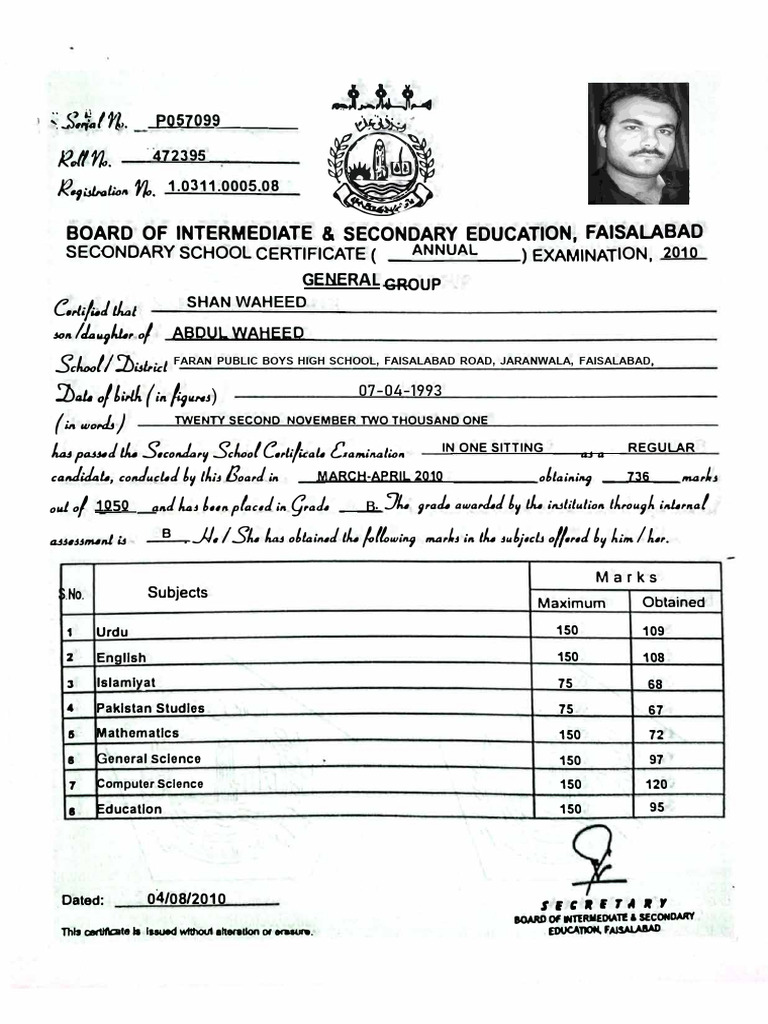 Serial No. P057099
Roll No. 472395
Registration No. 1.0311.0005.08
BOARD OF INTERMEDIATE & SECONDARY EDUCATION, FAISALABAD
SECONDARY SCHOOL CERTIFICATE ( ANNUAL ) EXAMINATION, 2010
GENERAL GROUP
Certified that SHAN WAHEED
son/daughter of ABDUL WAHEED
School / District FARAN PUBLIC BOYS HIGH SCHOOL, FAISALABAD ROAD, JARANWALA, FAISALABAD,
Date of birth (in figures) 07-04-1993
(in words) TWENTY SECOND NOVEMBER TWO THOUSAND ONE
has passed the Secondary School Certificate Examination IN ONE SITTING as a REGULAR
candidate, conducted by this Board in MARCH-APRIL 2010 obtaining 736 marks
out of 1050 and has been placed in Grade B. The grade awarded by the institution through internal
assessment is B. He / She has obtained the following marks in the subjects offered by him / her.
S.No. Subjects Marks
Maximum Obtained
1 Urdu 150 109
2 English 150 108
3 Islamiyat 75 68
4 Pakistan Studies 75 67
5 Mathematics 150 72
6 General Science 150 97
7 Computer Science 150 120
8 Education 150 95
Dated: 04/08/2010
SECRETARY
BOARD OF INTERMEDIATE & SECONDARY
EDUCATION, FAISALABAD
This certificate is issued without alteration or erasure.